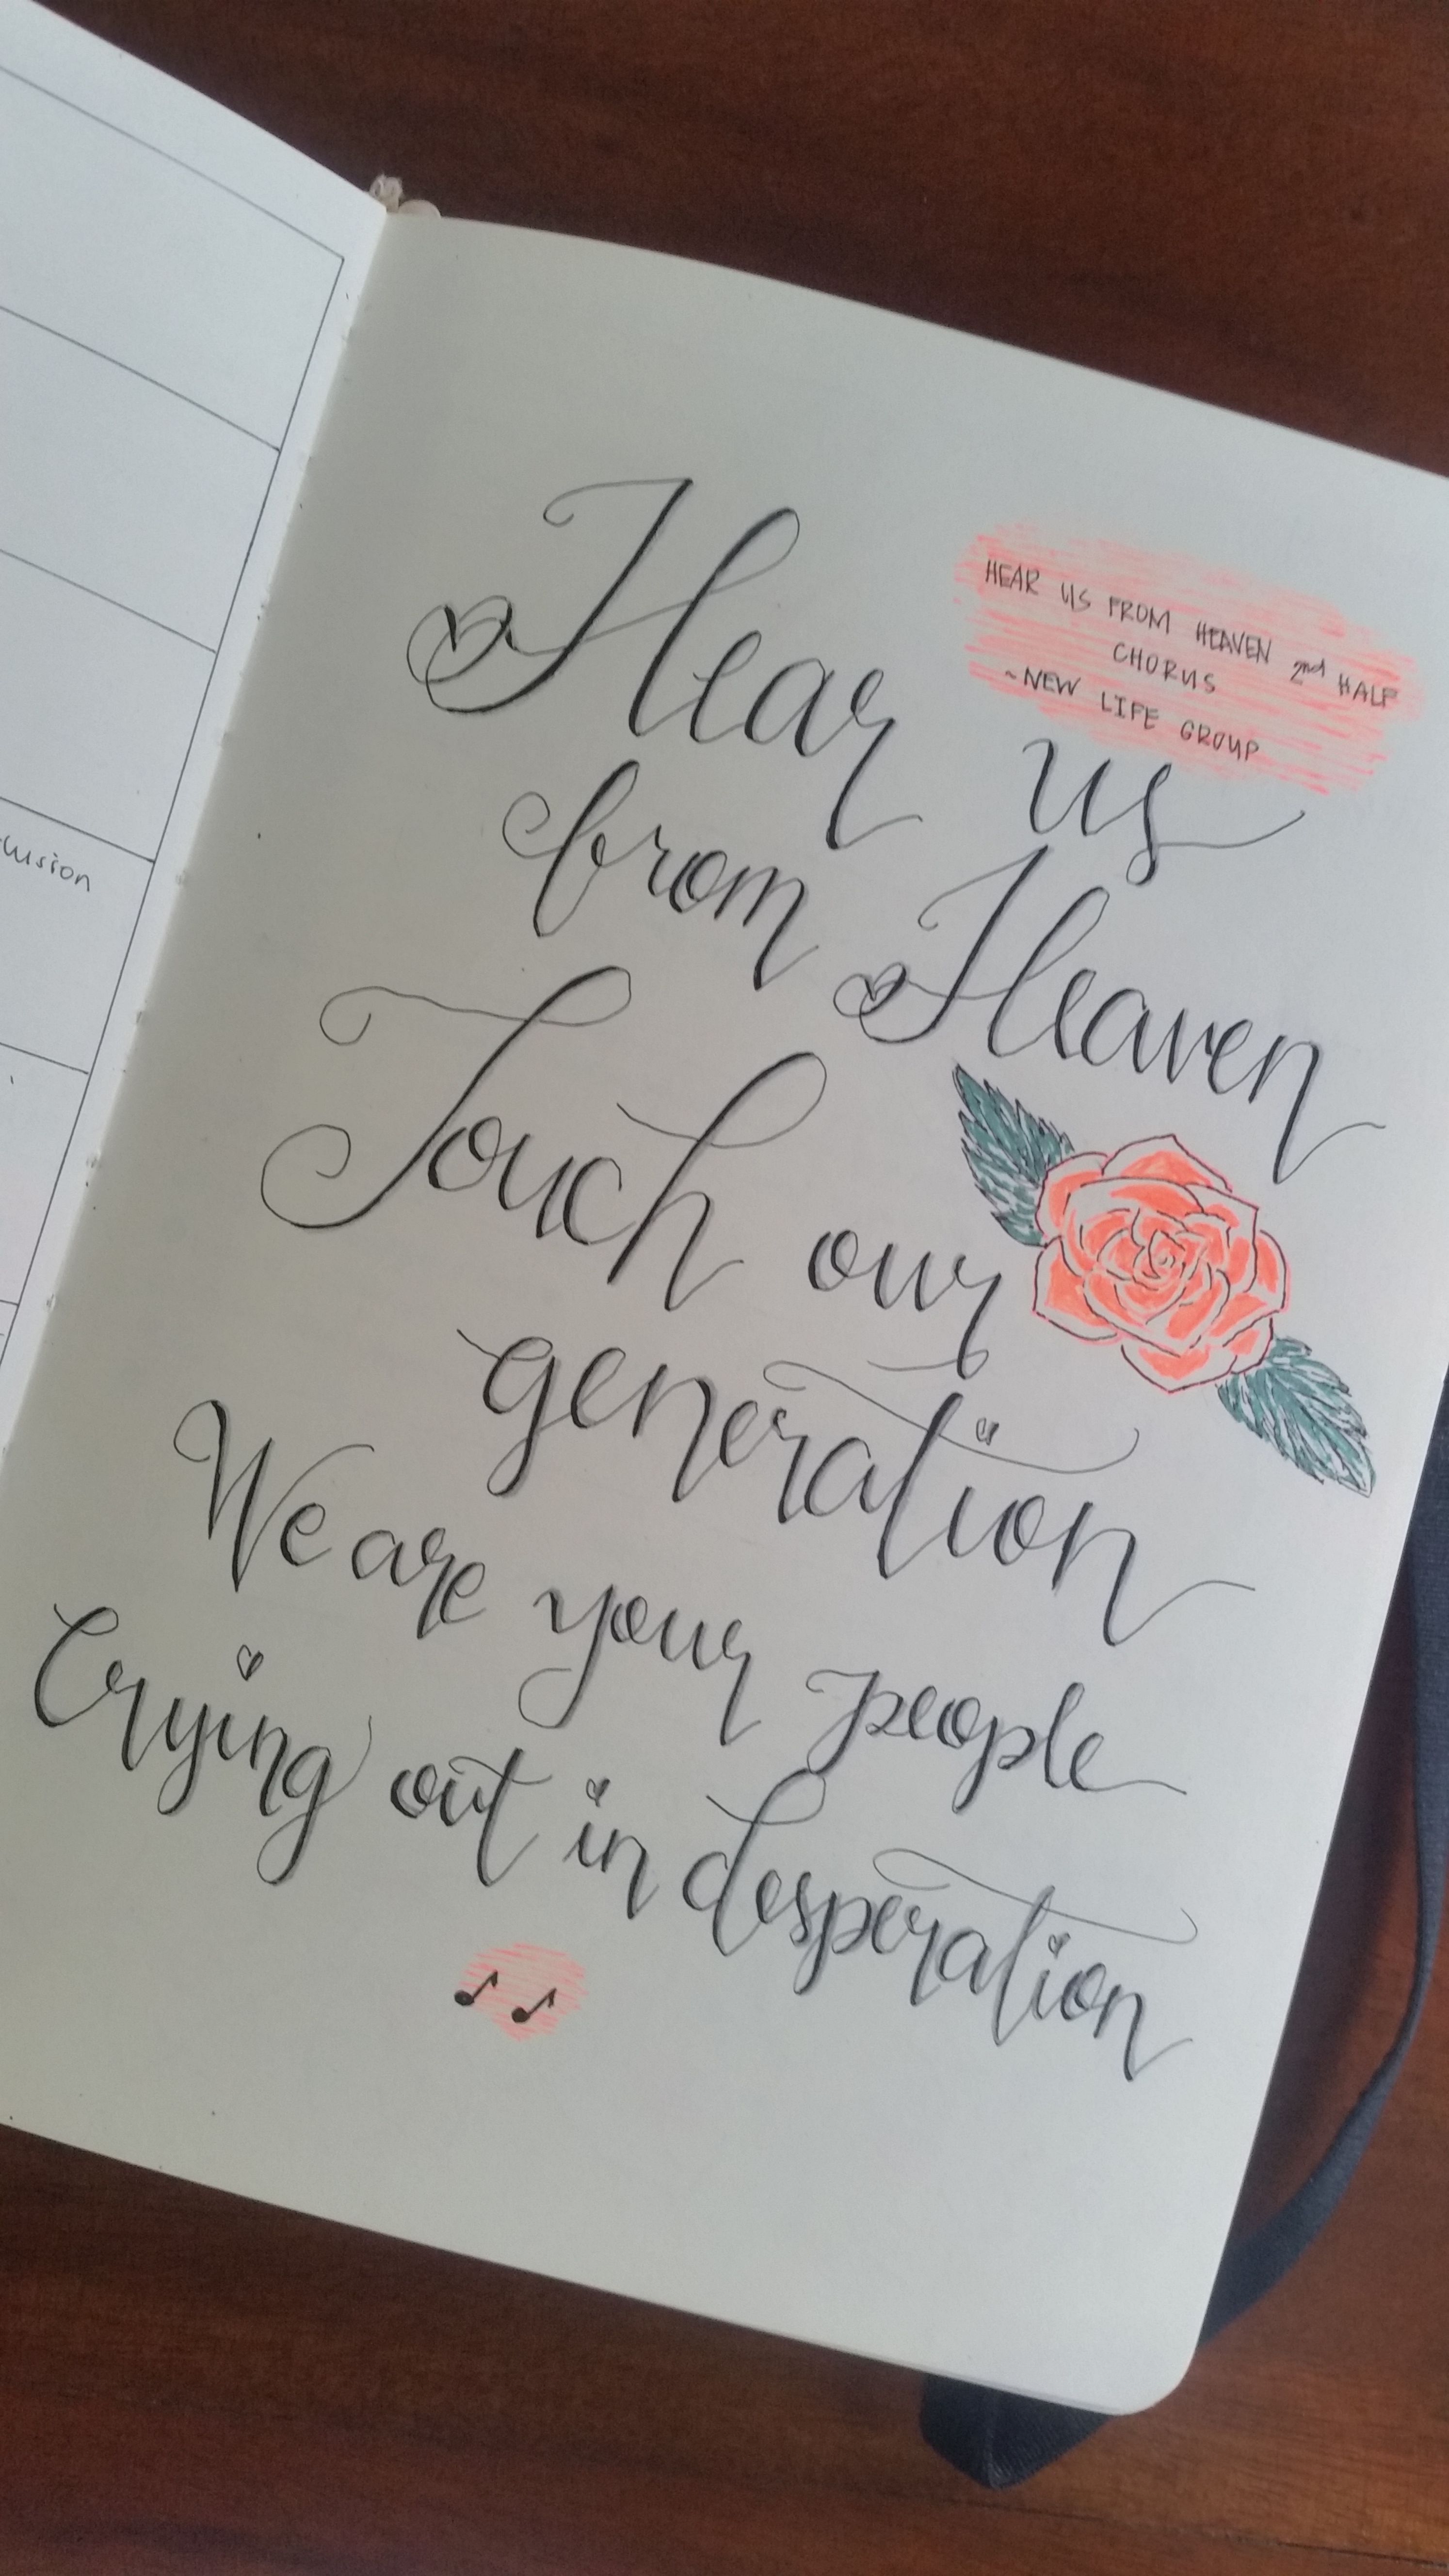 HEAR US FROM HEAVEN 2nd HALF
CHORUS
~NEW LIFE GROUP
Hear us
from Heaven
Touch our
generation
We are your people
Crying out in desperation